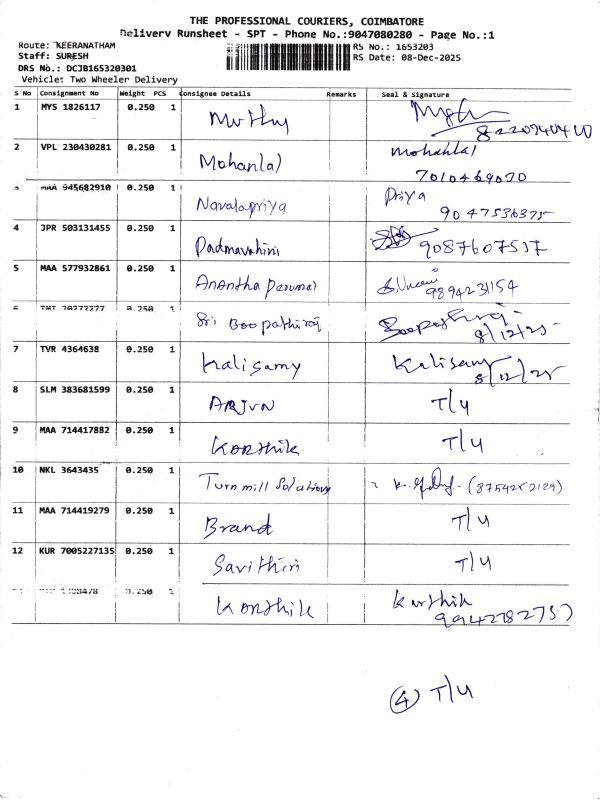 THE PROFESSIONAL COURIERS, COIMBATORE
Delivery Runsheet - SPT - Phone No.:9047080280 - Page No.:1
Route: KEERANATHAM
Staff: SURESH
DRS No.: DCJB165320301
Vehicle: Two Wheeler Delivery
RS No.: 1653203
RS Date: 08-Dec-2025
S No Consignment No Weight PCS Consignee Details Remarks Seal & Signature
1 MYS 1826117 0.250 1 Muthy
2 VPL 230430281 0.250 1 Mohanlal Mohanlal
7010469070
3 MAA 945682910 0.250 1 Navalapriya Priya
9047536375
4 JPR 503131455 0.250 1 Padmavahini 9087607517
5 MAA 577932861 0.250 1 Anantha perumal
9894231154
0.250 1 Sri Boopathiraj
8/12/25
7 TVR 4364638 0.250 1 Kalisamy Kalisamy
8/12/25
8 SLM 383681599 0.250 1 ARJUN T/4
9 MAA 714417882 0.250 1 Karthik T/4
10 NKL 3643435 0.250 1 Turn mill Solutions (8754252129)
11 MAA 714419279 0.250 1 Brand T/4
12 KUR 7005227135 0.250 1 Savithiri T/4
0.250 1 Karthik Karthik
9942782757
4 T/4